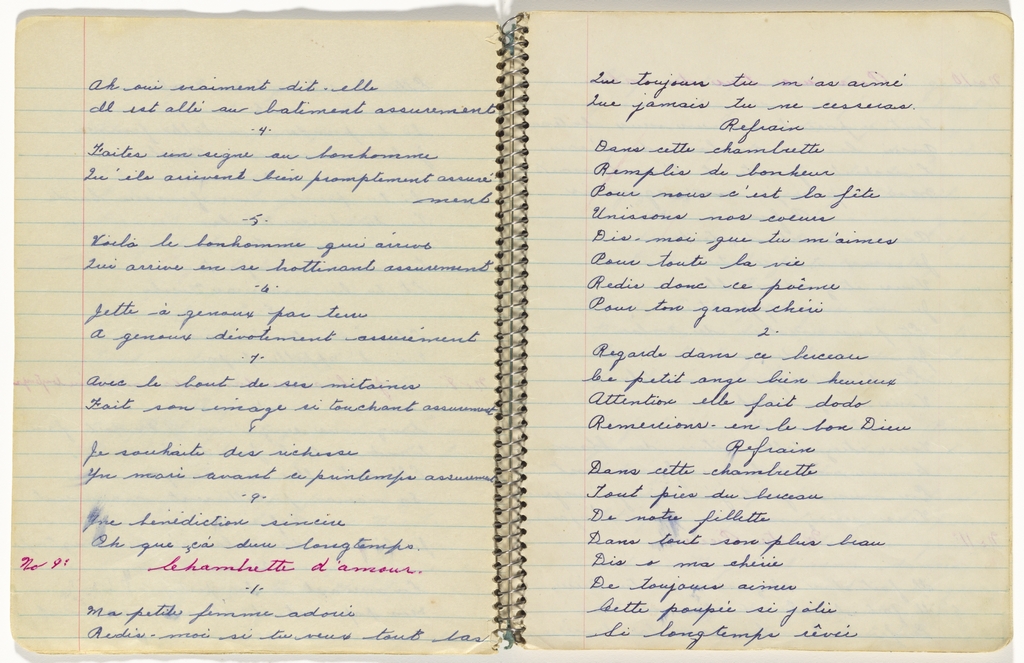 Ah oui vraiment dit-elle
Il est allé au batiment assurement
-4-
Faites un signe au bonhomme
Qu'ils arrivent bien promptement assuré
ment
-5-
Voilà le bonhomme qui arrive
Qui arrive en se trottinant assurement
-6-
Jette à genoux par terre
A genoux dévotement assurément
-7-
Avec le bout de ses mitaines
Fait son image si touchant assurement
8
Je souhaite des richesse
Un mari avant ce printemps assurement
-9-
Une bénédiction sincère
Oh que çà dure longtemps.
No 9: Chambrette d'amour.
-1-
Ma petite femme adorée
Redis-moi si tu veux tout bas
Que toujours tu m'as aimé
Que jamais tu ne cesseras.
Refrain
Dans cette chambrette
Remplis de bonheur
Pour nous c'est la fête
Unissons nos coeurs
Dis-moi que tu m'aimes
Pour toute la vie
Redis donc ce poème
Pour ton grand chéri
2-
Regarde dans ce berceau
Ce petit ange bien heureux
Attention elle fait dodo
Remercions-en le bon Dieu
Refrain
Dans cette chambrette
Tout près du berceau
De notre fillette
Dans tout son plus beau
Dis o ma chérie
De toujours aimer
Cette poupée si jolie
Si longtemps rêvée